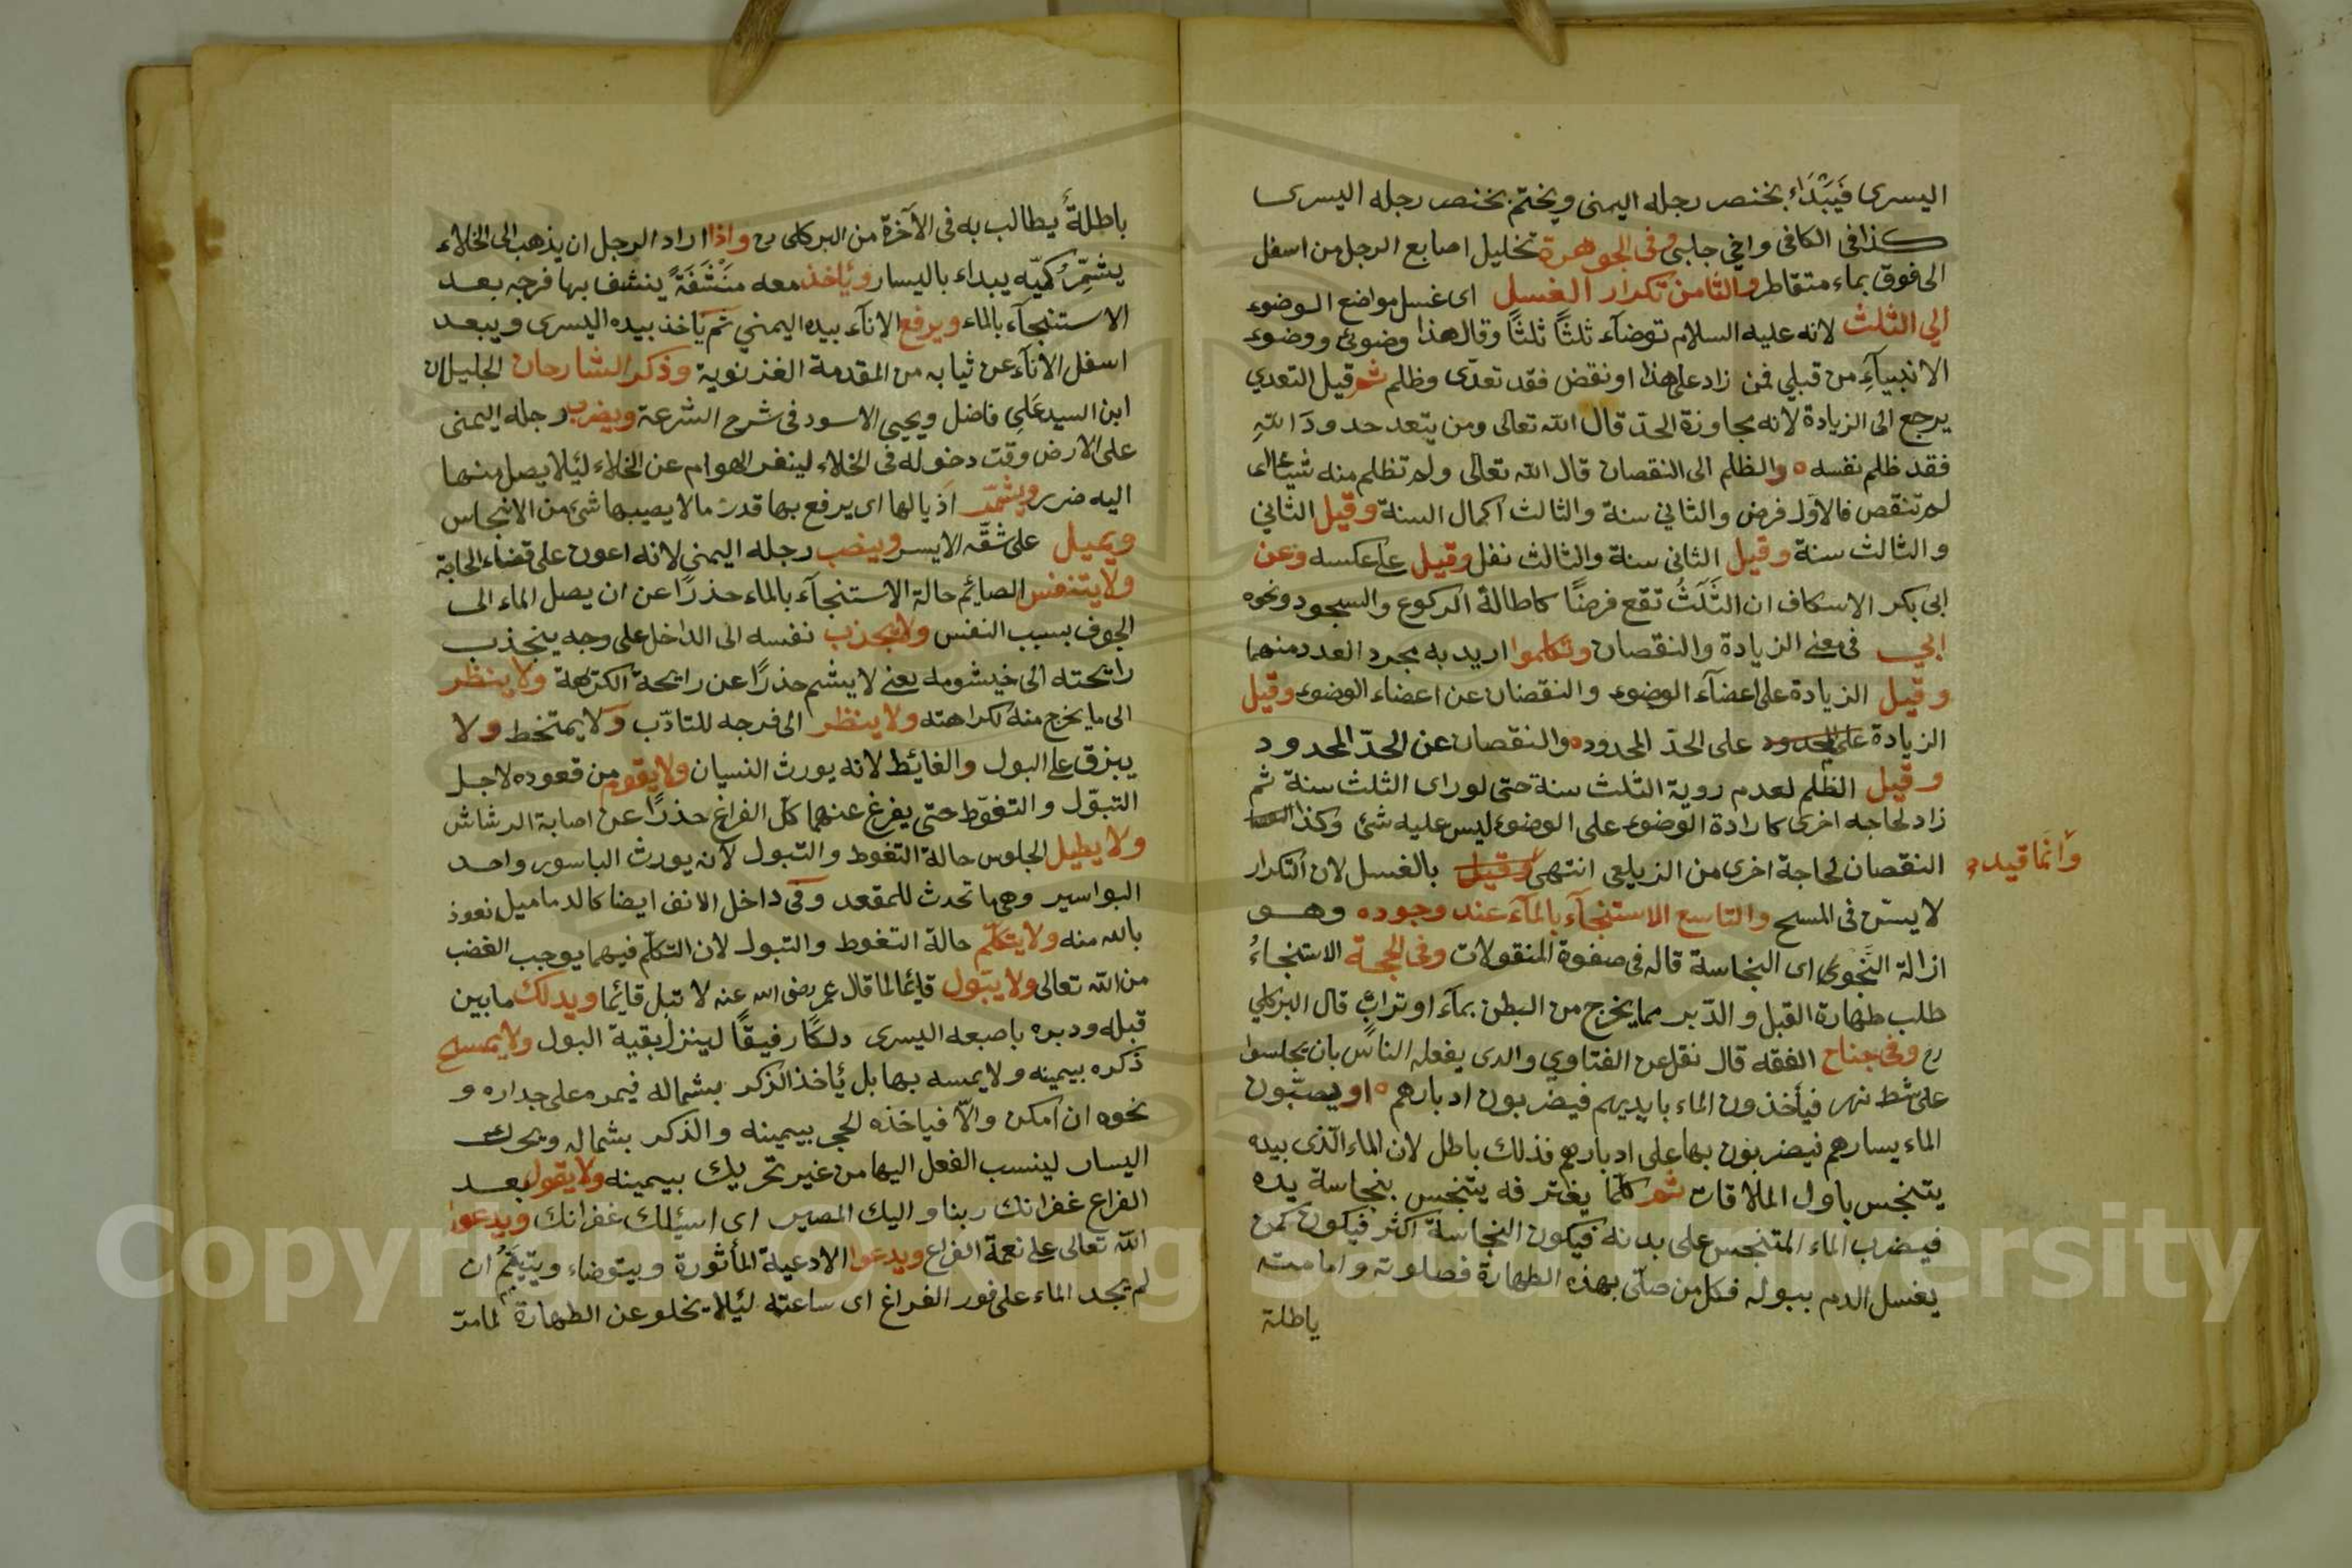 اليسرى فَيَبْدَاء بخنصر رجله اليمنى ويختم بخنصر رجله اليسرى
كذا في الكافي واخي جلبي وفى الجوهرة تخليل اصابع الرجل من اسفل
الى فوق بماء متقاطر والثامن تكرار الغسل اى غسل مواضع الوضوء
الي الثلث لانه عليه السلام توضاء ثلثًا ثلثًا وقال هذا وضوئى ووضوء
الانبيآءِ من قبلي فمن زاد على هذا او نقض فقد تعدّى وظلم ثم قيل التعدي
يرجع الى الزيادة لانه مجاوزة الحدّ قال الله تعالى ومن يتعد حدودَ اللهِ
فقد ظلم نفسه والظلم الى النقصان قال الله تعالى ولم تظلم منه شيئا اى
لم تنقص فالاوّل فرض والثاني سنة والثالث اكمال السنة وقيل الثاني
والثالث سنة وقيل الثاني سنة والثالث نفل وقيل على عكسه وعن
ابى بكر الاسكاف ان الثَّلَثُ تقع فرضًا كاطالة الركوع والسجود ونحوه
ابي فى معنى الزيادة والنقصان وتكلموا اريد به مجرد العدد منهما
وقيل الزيادة على اعضآء الوضوء والنقصان عن اعضاء الوضوء وقيل
الزيادة على المحدود على الحدّ المحدود والنقصان عن الحدّ المحدود
وقيل الظلم لعدم روية الثلث سنة حتى لو راى الثلث سنة ثم
زاد لحاجه اخرى كارادة الوضوء على الوضوء ليس عليه شئ وكذا
النقصان لحاجة اخرى من الزيلعى انتهى وقيل بالغسل لان التكرار
وانّما قيده
لا يسنّ فى المسح والتاسع الاستنجآء بالمآء عند وجوده وهو
ازالة النَّجوى اى النجاسة قاله فى صفوة المنقولات وفى الحجة الاستنجاءُ
طلب طهارة القبل والدّبر مما يخرج من البطن بمآء او تراب قال البركلي
رح وفى جناح الفقه قال نقل عن الفتاوي والذى يفعله الناس بان يجلسوا
على شط نهر فيأخذون الماء بايديهم فيضربون ادبارهم او يصبّون
الماء يسارهم فيضربون بها على ادبارهم فذلك باطل لان الماء الّذى بيده
يتنجس باول الملاقات ثم كلّما يغتر فه يتنجس بنجاسة يده
فيضرب الماء المتنجس على بدنه فيكون النجاسة اكثر فيكون كمن
يغسل الدم ببوله فكل من صلّى بهذه الطهارة فصلوته وامامته
ياطلة
باطلةً يطالب به فى الآخرة من البركلى واذا اراد الرجل ان يذهب الى الخلاء
يشمِّر كمّيه يبداء باليسار وياخذ معه مَنْشَفَةً ينشف بها فرجه بعد
الاستنجآء بالماء ويرفع الانآء بيده اليمني ثم ياخذ بيده اليسرى ويبعد
اسفل الانآء عن ثيابه من المقدمة الغزنوية وذكر الشارحان الجليلان
ابن السيد عَلِى فاضل ويحيى الاسود فى شرح الشرعة ويضرب رجله اليمنى
على الارض وقت دخوله فى الخلاء لينفر الهوام عن الخلاء ليئلا يصل منها
اليه ضرر ويشمّر اذيالها اى يرفع بها قدر ما لا يصيبها شئ من الانجاس
ويميل على شقّه الايسر وينصب رجله اليمني لانه اعون على قضاء الحاجة
ولا يتنفس الصائم حالة الاستنجآء بالماء حذرًا عن ان يصل الماء الى
الجوف بسبب النفس ولا يجذب نفسه الى الداخل على وجه ينجذب
رايحته الى خيشومه يعنى لا يشم حذرًا عن رايحة الكريهة ولا ينظر
الى ما يخرج منه لكراهته ولا ينظر الى فرجه للتادّب ولا يمتخط ولا
يبزق على البول والغائط لانه يورث النسيان ولا يقوم من قعوده لاجل
التبوّل والتغوّط حتى يفرغ عنهما كلّ الفراغ حذرًا عن اصابة الرشاش
ولا يطيل الجلوس حالة التغوط والتبول لانه يورث الباسور واحد
البواسير وهى ما تحدث للمقعد وفى داخل الانف ايضا كالدماميل نعوذ
بالله منه ولا يتكلّم حالة التغوط والتبول لان التكلّم فيهما يوجب الغضب
من الله تعالى ولا يتبول قايما لما قال عمر رضى الله عنه لا تبل قائما ويدلك ما بين
قبله ودبره باصبعه اليسرى دلكًا رفيقًا لينزل بقية البول ولا يمسح
ذكره بيمينه ولا يمسه بها بل ياخذ الذكر بشماله فيمره على جداره و
نحوه ان امكن والّا فياخذه الحجر بيمينه والذكر بشماله ويحرك
اليسار لينسب الفعل اليها من غير تحريك بيمينه ولا يقول بعد
الفراغ غفرانك ربنا واليك المصير اى اسئلك غفرانك ويدعوا
الله تعالى على نعمة الفراغ ويدعوا الادعية المأثورة ويتوضاء ويتيمّم ان
لم يجد الماء على فور الفراغ اى ساعته ليئلا يخلو عن الطهارة لما مرّ
Copyright © King Saud University